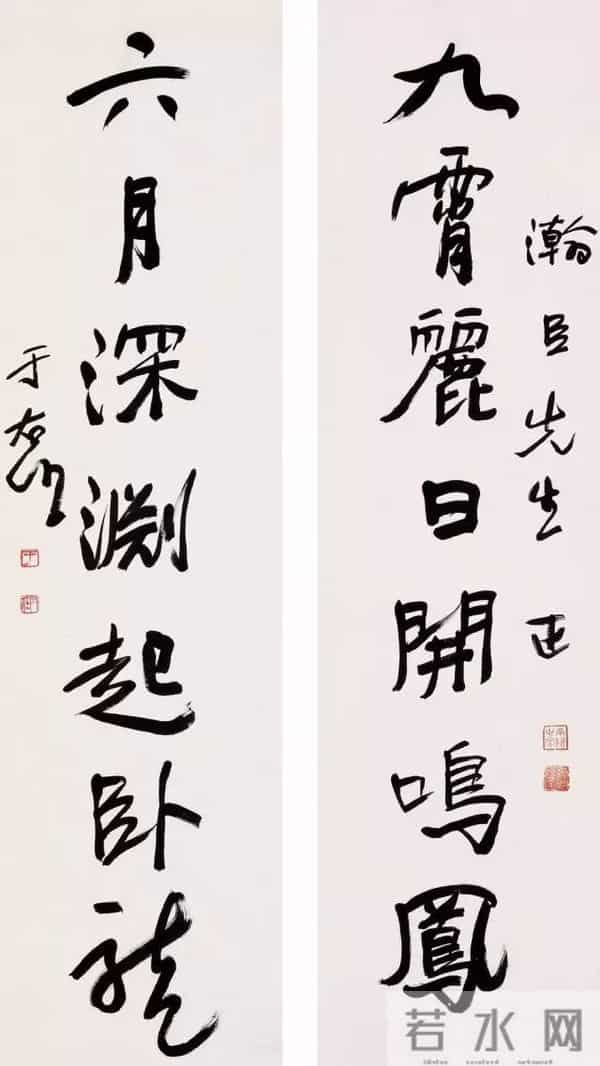 瀚臣先生正
九霄麗日開鳴鳳
六月深淵起卧龍
于右任
若水网